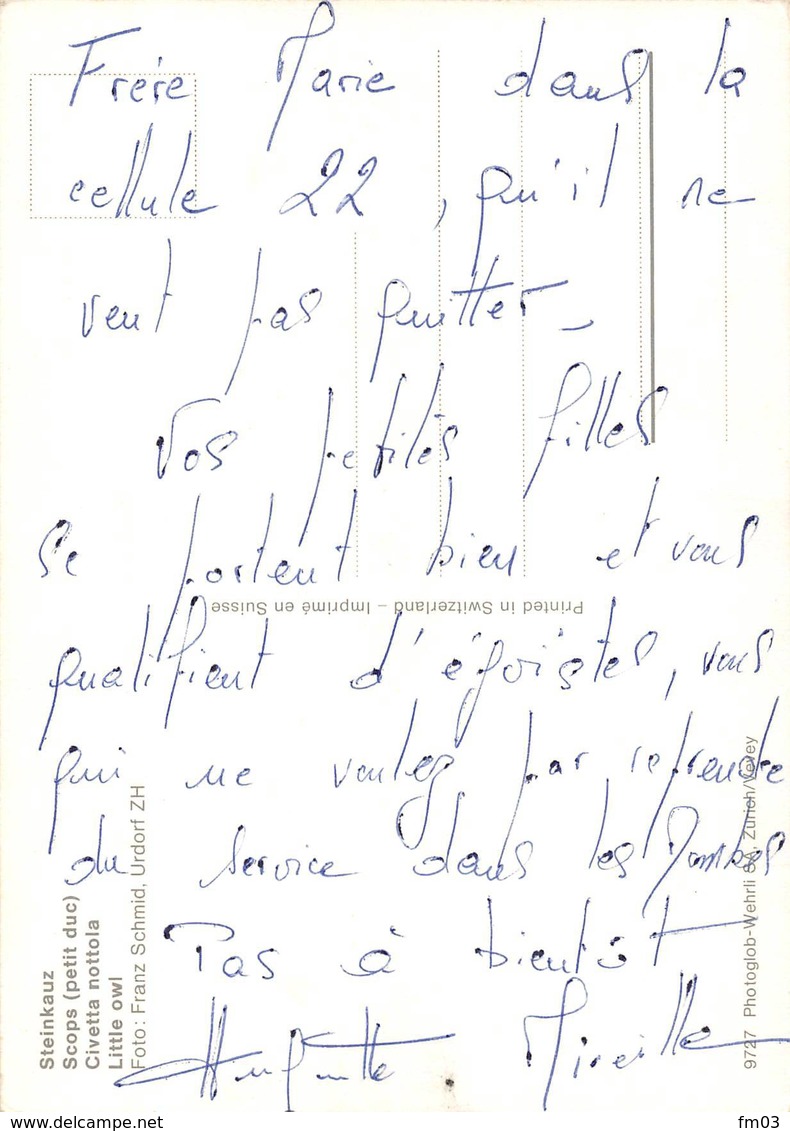 Frère Marie dans la
cellule 22, qu'il ne
veut pas quitter –
Vos petites filles
se portent bien et vous
qualifient d'égoïstes, vous
qui ne voulez pas reprendre
du service dans les Dombes
Pas à bientôt
Huguette Mireille
Printed in Switzerland – Imprimé en Suisse
Steinkauz
Scops (petit duc)
Civetta nottola
Little owl
Foto: Franz Schmid, Urdorf ZH
9727 Photoglob-Wehrli SA, Zürich/Vevey
fm03